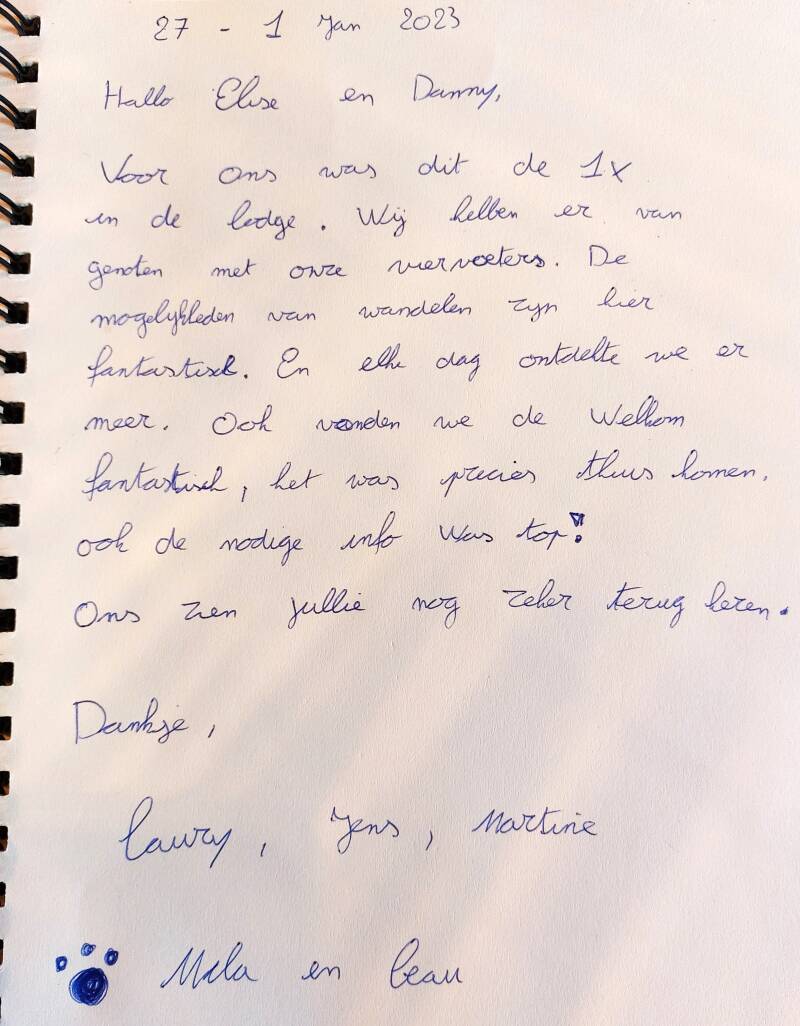 27 - 1 Jan 2023
Hallo Elise en Danny,
Voor ons was dit de 1x
in de lodge. Wij hebben er van
genoten met onze viervoeters. De
mogelijkheden van wandelen zijn hier
fantastisch. En elke dag ontdekte we er
meer. Ook vonden we de Welkom
fantastisch, het was precies thuis komen.
ook de nodige info was top!
Ons zien jullie nog zeker terug keren.
Dankje,
Laury, Jens, Martine
Mila en Beau